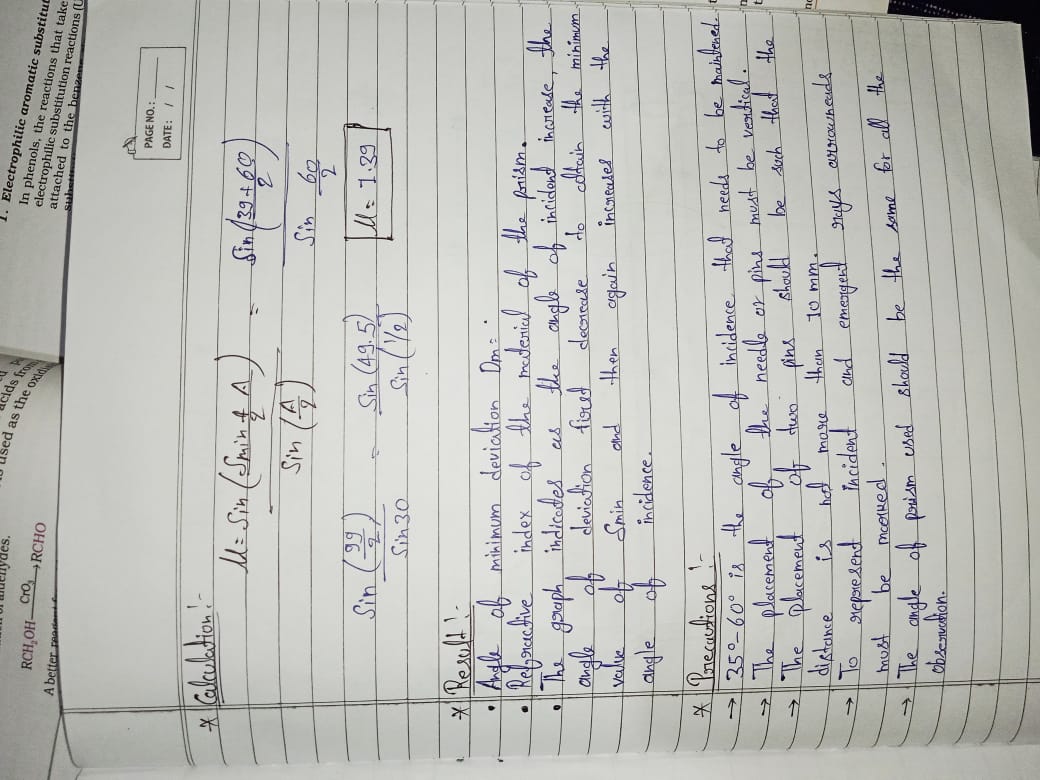 of aldehydes.
RCH₂OH —CrO₃→ RCHO
A better reagent f
used as the oxidi
acids from
1. Electrophilic aromatic substitut
In phenols, the reactions that take
electrophilic substitution reactions (U
attached to the benzene
PAGE NO.:
DATE: / /
* Calculation:-
μ = Sin (δmin + A / 2) / Sin (A/2) = Sin (39+60 / 2) / Sin 60/2
Sin (99/2) / Sin30 = Sin (49.5) / Sin (1/2) μ = 1.39
* Result:-
• Angle of minimum deviation Dm =
• Refractive index of the material of the prism.
• The graph indicates as the angle of incident increase, the
angle of deviation first decrease to obtain the minimum
value of δmin and then again increases with the
angle of incidence.
* Precautions:-
→ 35°-60° is the angle of incidence that needs to be maintened.
→ The placement of the needle or pins must be vertical.
→ The placement of two pins should be such that the
distance is not more than 10 mm.
→ To represent incident and emergent rays arrowheads
must be marked.
→ The angle of prism used should be the same for all the
observation.